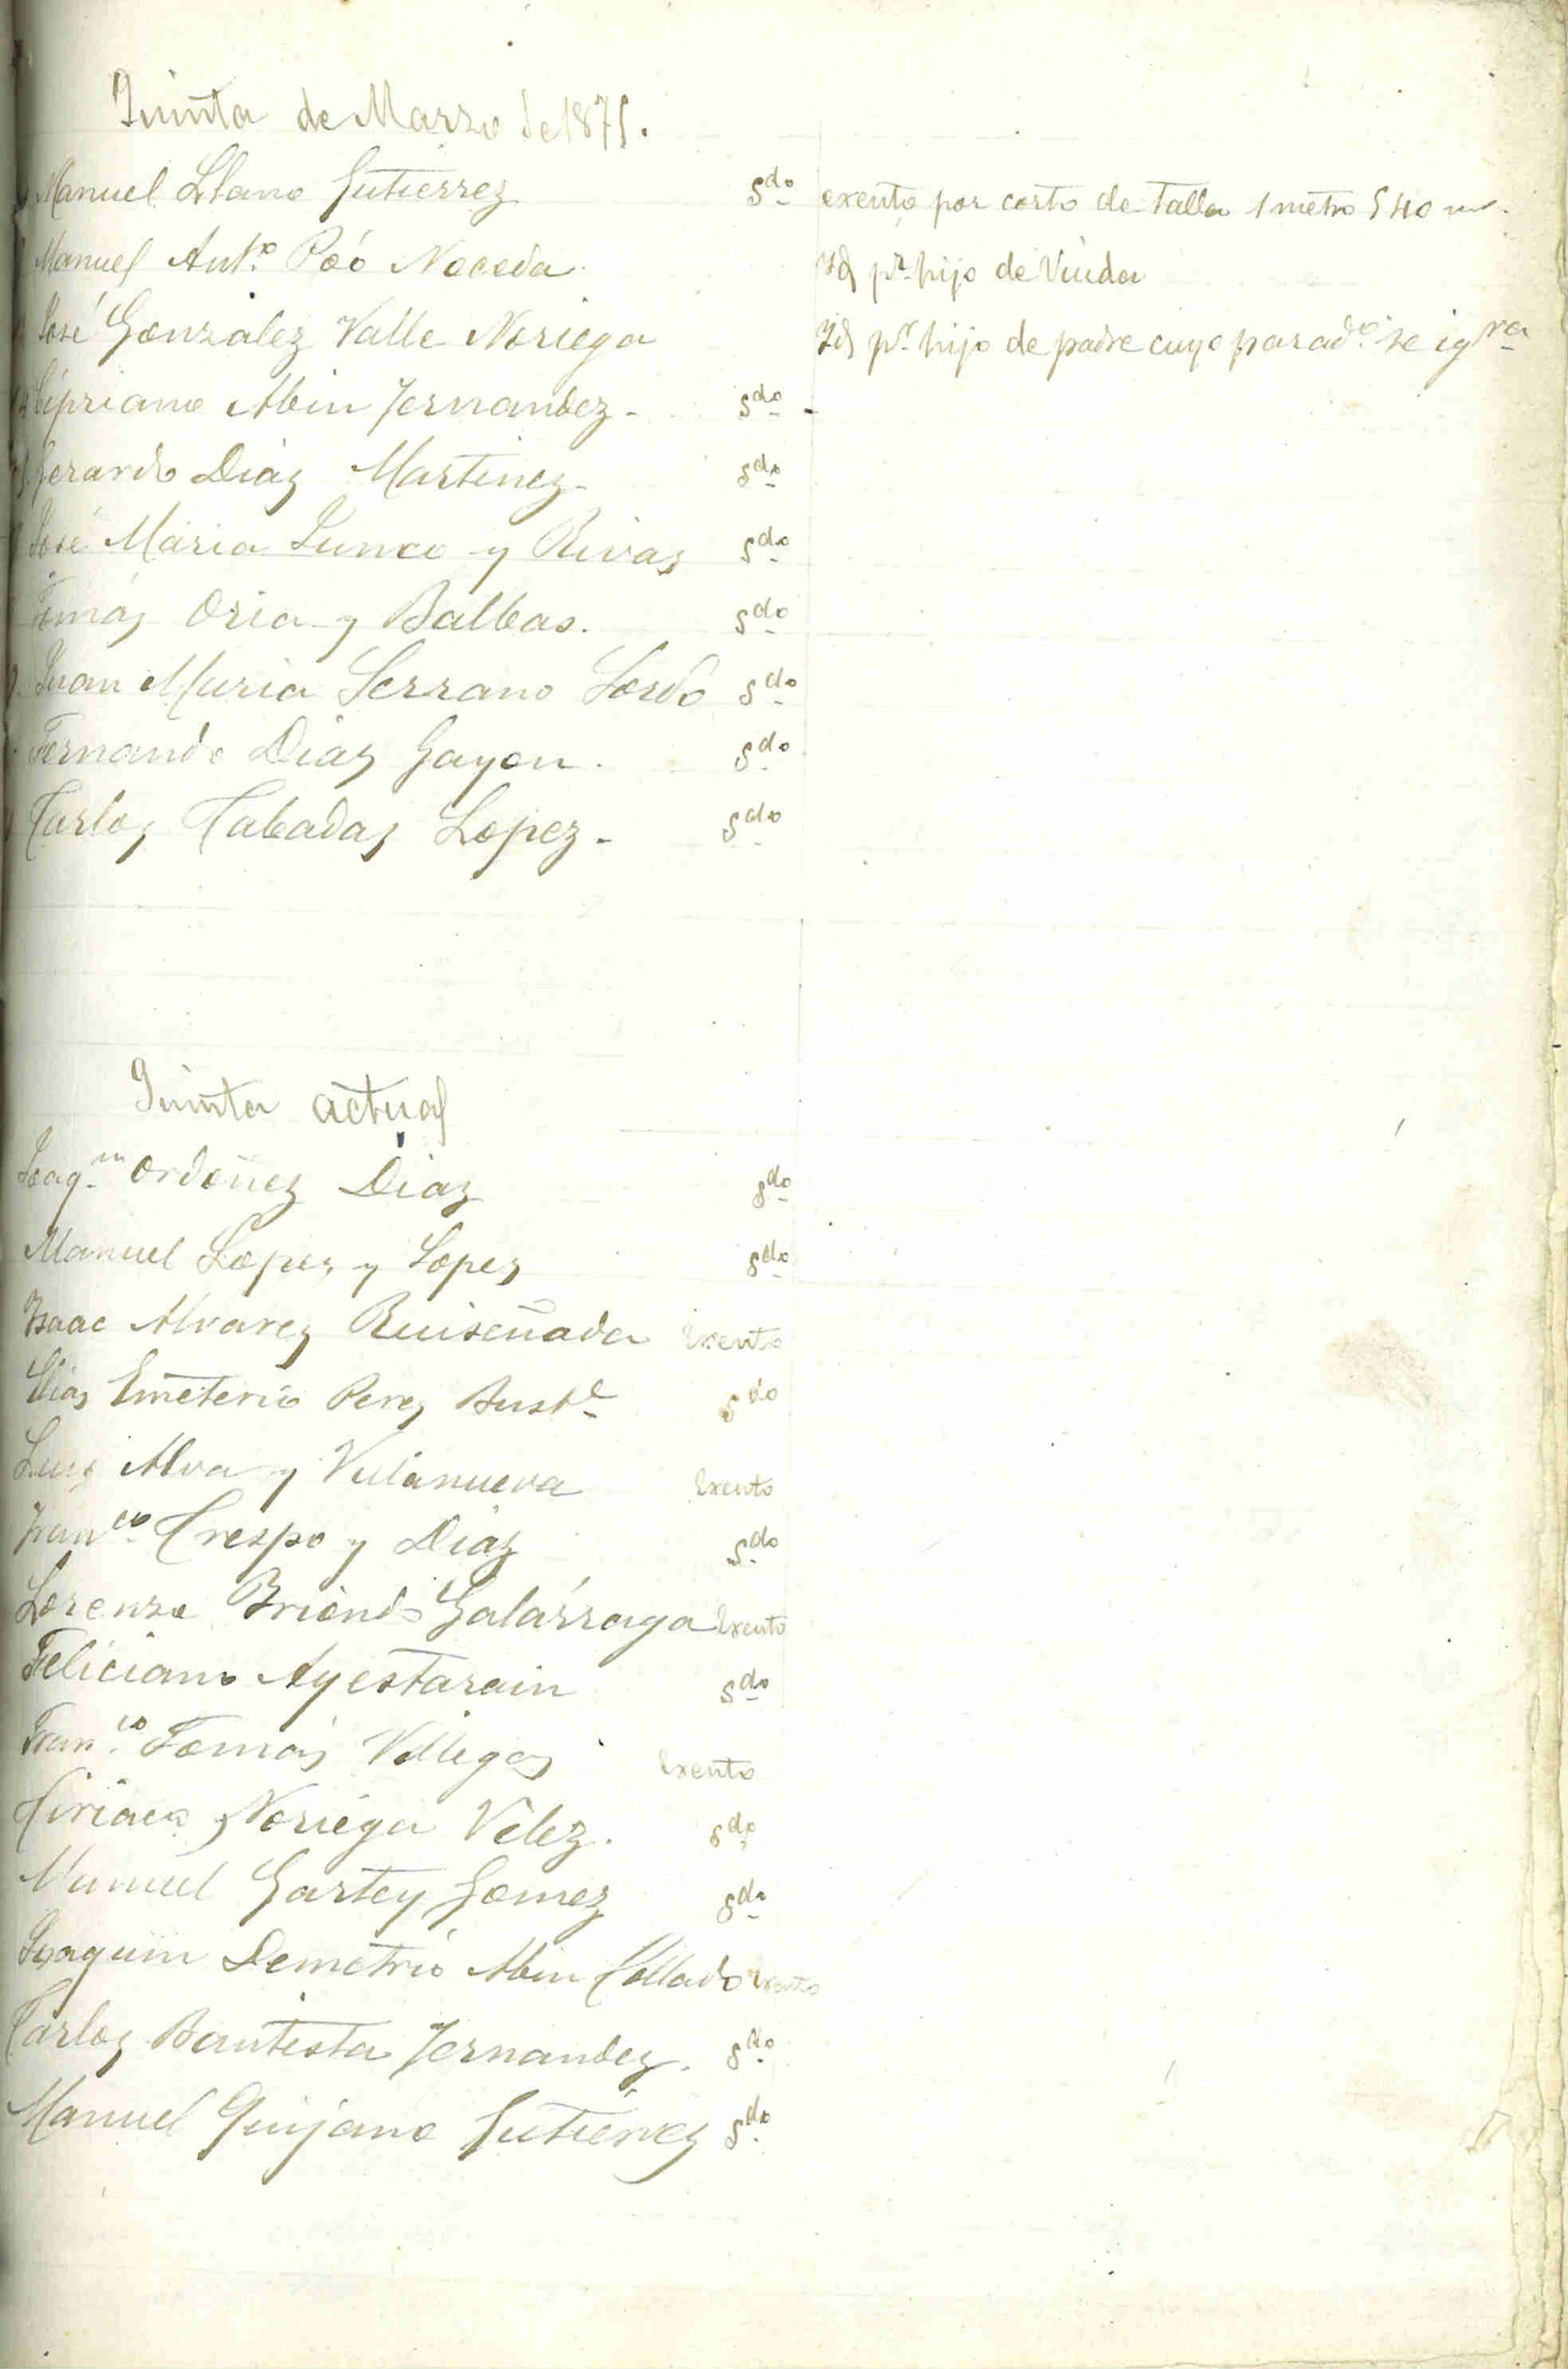 Quinta de Marzo de 1875.
Manuel Llano Gutierrez Sdo exento por corto de talla 1 metro 540 ms.
Manuel Anto. Poó Noceda. Id pr. hijo de Viuda
José Gonzalez Valle Noriega Id pr. hijo de padre cuyo parado. se igra
Cipriano Abin Fernandez - Sdo -
Gerardo Diaz Martinez - Sdo
José Maria Junco y Rivas Sdo
Tomás Oria y Balbas. Sdo
Juan Maria Serrano Sordo Sdo
Fernando Diaz Gayon. Sdo
Carlos Tabadas Lopez - Sdo
Quinta actual
Joaqn. Ordoñez Diaz Sdo
Manuel Lopez y Lopez Sdo
Isaac Alvarez Ruiseñada Exento
Elias Emeterio Perez Bust.e Sdo
Luis Alva y Villanueva Exento
Franco. Crespo y Diaz Sdo
Lorenzo Briondo Galárraga Exento
Feliciano Ayestarain Sdo
Franco. Tomás Villegas Exento
Ciriaco Noriega Velez. Sdo
Manuel Gartey Gomez Sdo
Joaquin Demetrio Abin Collado Exento
Carlos Bautista Fernandez. Sdo
Manuel Quijano Gutierrez Sdo